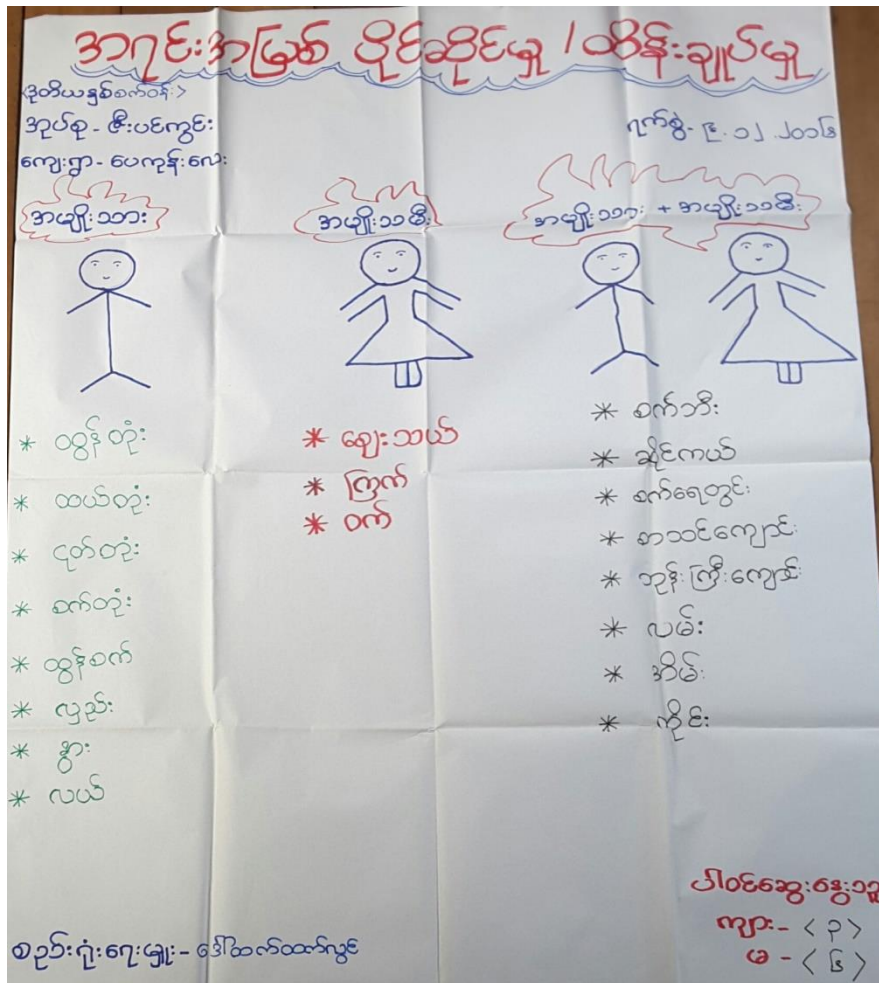 အရင်းအမြစ် ပိုင်ဆိုင်မှု / ထိန်းချုပ်မှု
<ဒုတိယနှစ်စက်ဝန်း>
အုပ်စု - ဇီးပင်ကွင်း
ရက်စွဲ - ၉.၁၂.၂၀၁၆
ကျေးရွာ - ပေကုန်းလေး
အမျိုးသား
အမျိုးသမီး
အမျိုးသား + အမျိုးသမီး
* ထွန်တုံး
* ထယ်တုံး
* ငုတ်တုံး
* စက်တုံး
* ထွန်စက်
* လှည်း
* နွား
* လယ်
* ဈေးသယ်
* ကြက်
* ဝက်
* စက်ဘီး
* ဆိုင်ကယ်
* စက်ရေတွင်း
* စာသင်ကျောင်း
* ဘုန်းကြီးကျောင်း
* လမ်း
* အိမ်
* ကိုင်း
ပါဝင်ဆွေးနွေးသူ
ကျား - <၃>
မ - <၆>
စည်းရုံးရေးမှူး - ဒေါ်ထက်ထက်လွင်